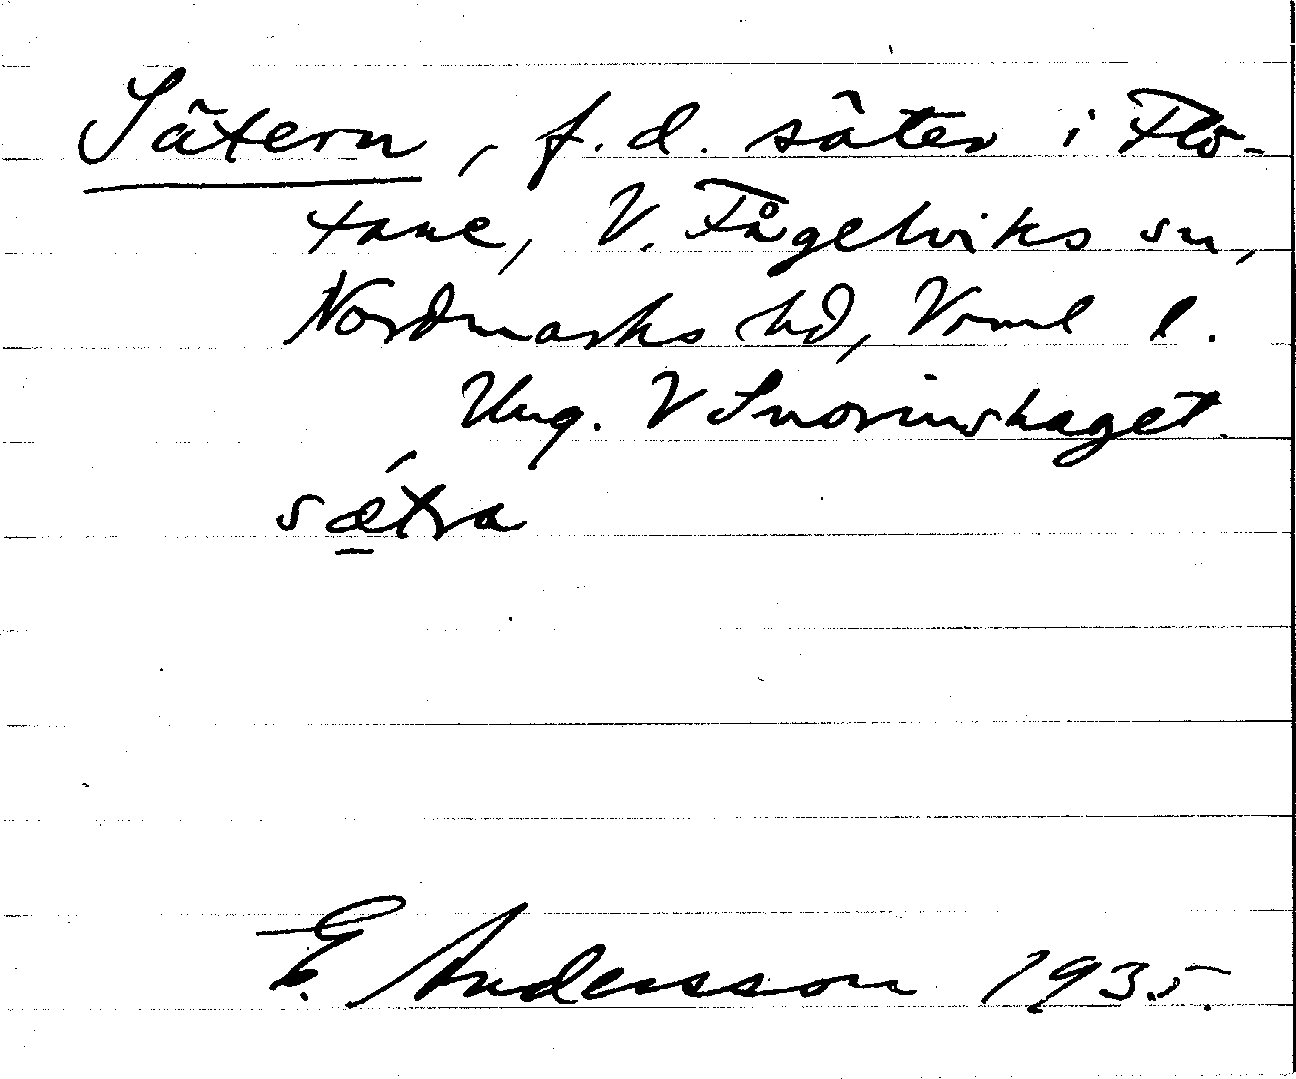 Sätern, f.d. säter i Flö-
tane, V. Fågelviks sn,
Nordmarks hd, Vrml l.
Ung. V Snorinshaget.
sǽtra
E. Andersson 1935.